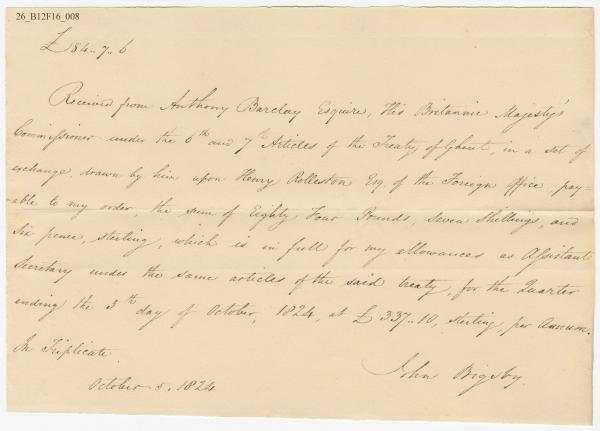 26_B12F16_008
£84..7..6
Received from Anthony Barclay Esquire, His Britannic Majesty's
Commissioner under the 6th and 7th Articles of the Treaty of Ghent, in a set of
exchange, drawn by him upon Henry Rolleston Esq. of the Foreign Office, pay-
-able to my order, the sum of Eighty Four Pounds, Seven Shillings, and
Six pence, sterling, which is in full for my allowances as Assistant
Secretary under the same articles of the said treaty, for the Quarter
ending the 5th day of October, 1824, at £337..10, sterling, per Annum.
In Triplicate.
John Bigsby.
October 5. 1824